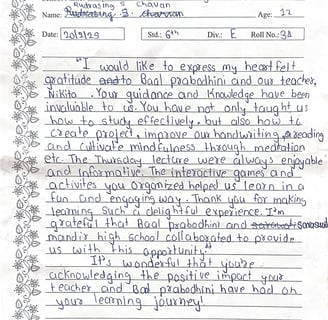 Rudrasing S Chavan
Name: Rudrasing. S. chavan Age: 12
Date: 20/2/25 Std.: 6th Div.: E Roll No.: 31
"I would like to express my heartfelt
gratitude and to Baal prabodhini and our teacher,
Nikita. Your guidance and Knowledge have been
invaluable to us. You have not only taught us
how to study effectively, but also how to
create project, improve our handwriting, areading
and cultivate mindfulness through meditation
etc. The Thursday lecture were always enjoyable
and informative. The interactive games and
activites you organized helped us learn in a
fun and engaging way. Thank you for making
learning such a delightful experience. I'm
grateful that Baal prabodhini and saraswati
mandir high school collaborated to provide
us with this opportunity"
It's wonderful that you're
acknowledging the positive impact your
teacher and Bal prabodhini have had on
your learning journey!